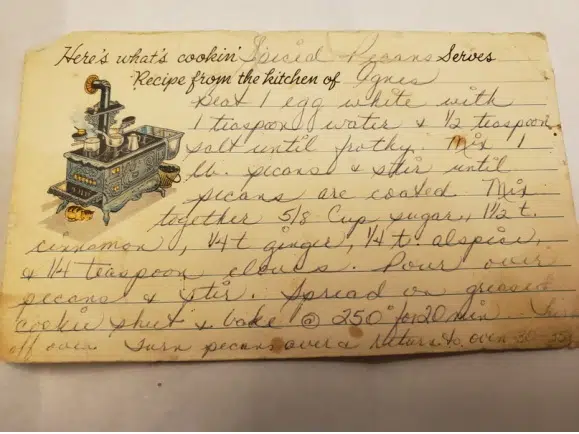 Here's what's cookin' Spiced Pecans Serves
Recipe from the kitchen of Agnes
Beat 1 egg white with
1 teaspoon water & 1/2 teaspoon
salt until frothy. Mix 1
lb. pecans & stir until
pecans are coated. Mix
together 5/8 Cup sugar, 1 1/2 t.
cinnamon, 1/4 t ginger, 1/4 t. alspice,
& 1/4 teaspoon cloves. Pour over
pecans & stir. Spread on greased
cookie sheet & bake @ 250° for 20 min. Turn
off oven. Turn pecans over & return to oven